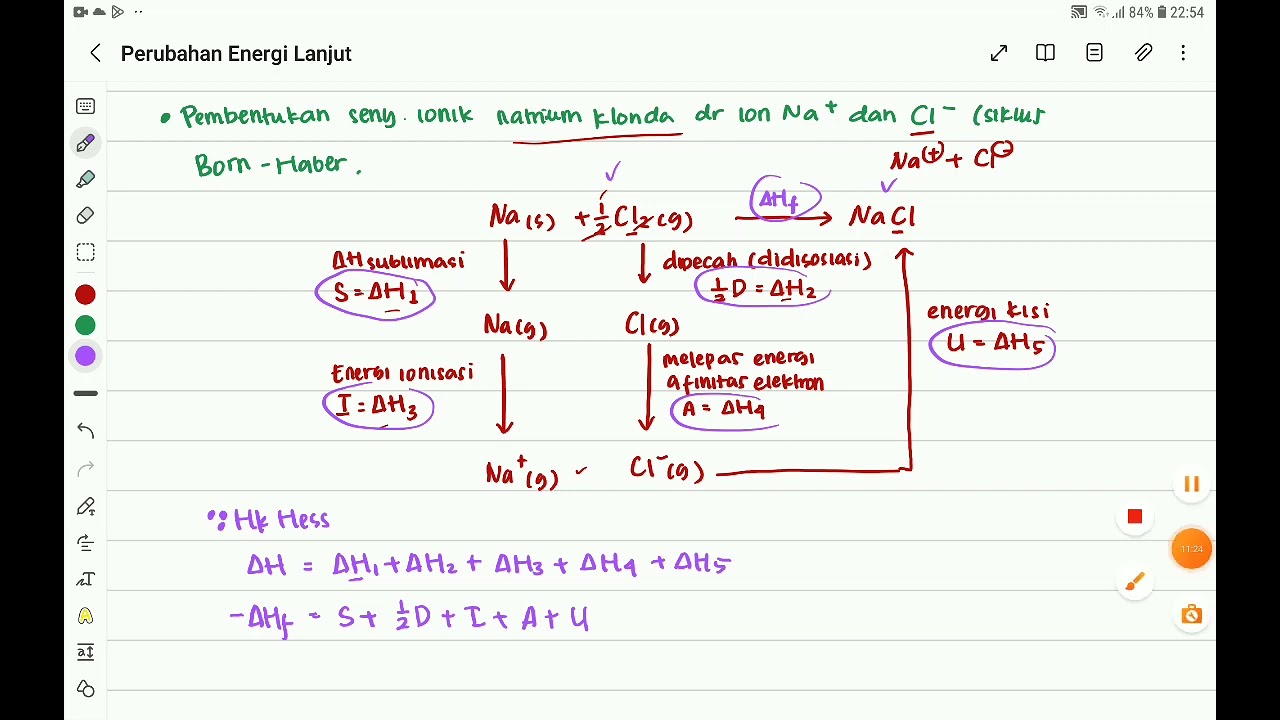 84% 22:54
Perubahan Energi Lanjut
• Pembentukan seny. ionik natrium klorida dr ion Na⁺ dan Cl⁻ (siklus
Born-Haber.
Na(+) + Cl(-)
Na(s) + ½Cl₂(g) ΔHf NaCl
ΔH sublimasi
S = ΔH₁
dipecah (didisosiasi)
½D = ΔH₂
energi kisi
U = ΔH₅
Na(g) Cl(g)
Energi ionisasi
I = ΔH₃
melepas energi
afinitas elektron
A = ΔH₄
Na⁺(g) Cl⁻(g)
Hk Hess
ΔH = ΔH₁ + ΔH₂ + ΔH₃ + ΔH₄ + ΔH₅
-ΔHf = S + ½D + I + A + U
11:24